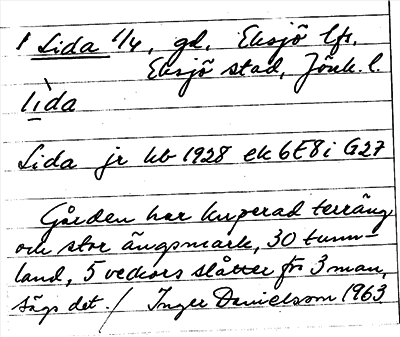 1 Lida 1/4, gd, Eksjö lfs.
Eksjö stad, Jönk. l.
lìda
Lida jr kb 1928 ek 6E8i G27
Gården har kuperad terräng
och stor ängsmark, 30 tunn-
land, 5 veckors slåtter för 3 man,
sägs det. / Inger Danielsson 1963